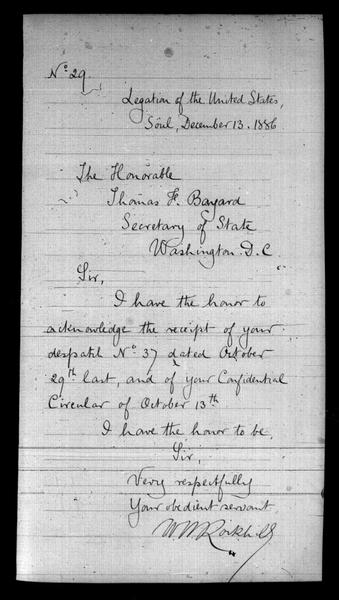 No 29
Legation of the United States,
Söul, December 13. 1886
The Honorable
Thomas F. Bayard
Secretary of State
Washington D.C
Sir,
I have the honor to
acknowledge the receipt of your
despatch No 37 dated October
29th last, and of your Confidential
Circular of October 13th
I have the honor to be
Sir,
Very respectfully
Your obedient servant
W W Rockhill